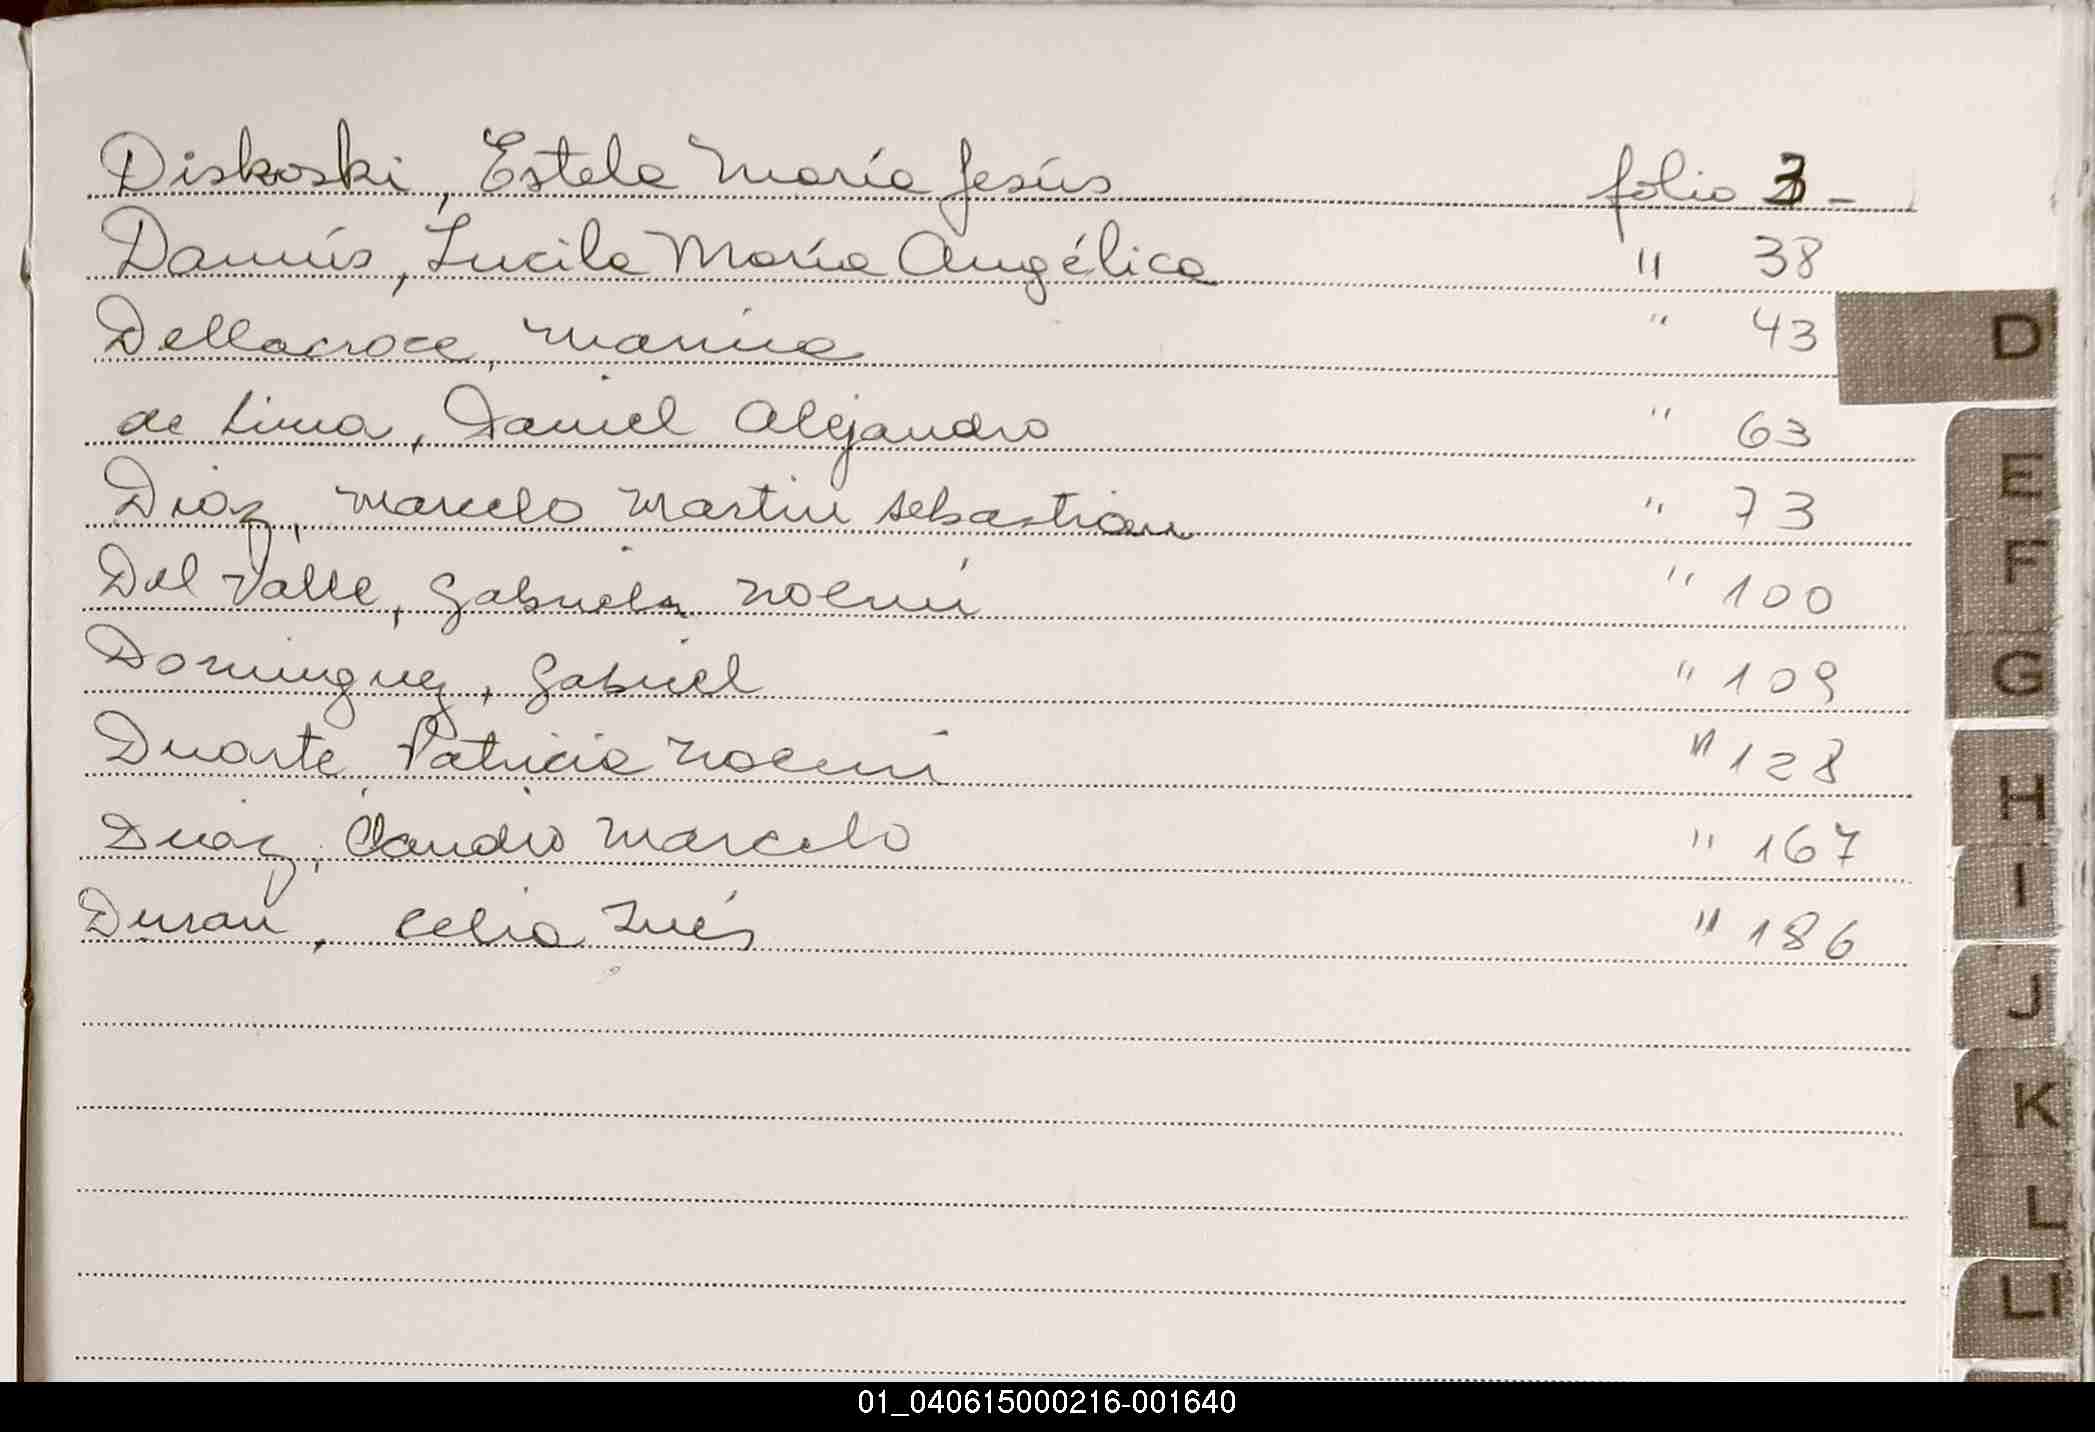 Diskoski, Estela María Jesús folio 3 -
Damús, Lucila María Angélica " 38
Dellacroce, Marina " 43
D
de Lima, Daniel Alejandro " 63
Díaz, Marcelo Martin Sebastian " 73
E
Del Valle, Gabriela Noemí " 100
F
Dominguez, Gabriel " 109
G
Duarte Patricia Noemi " 128
H
Diáz, Claudio Marcelo " 167
I
Duran, Celia Inés " 186
J
K
L
Ll
01_040615000216-001640